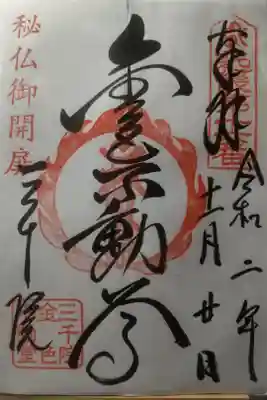 奉拝
令和二年
十一月廿日
金色不動尊
秘仏御開扉
三千院
三千院
金色堂